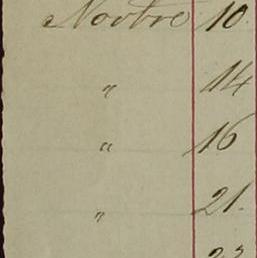 Novbre 10
" 14
" 16
" 21.